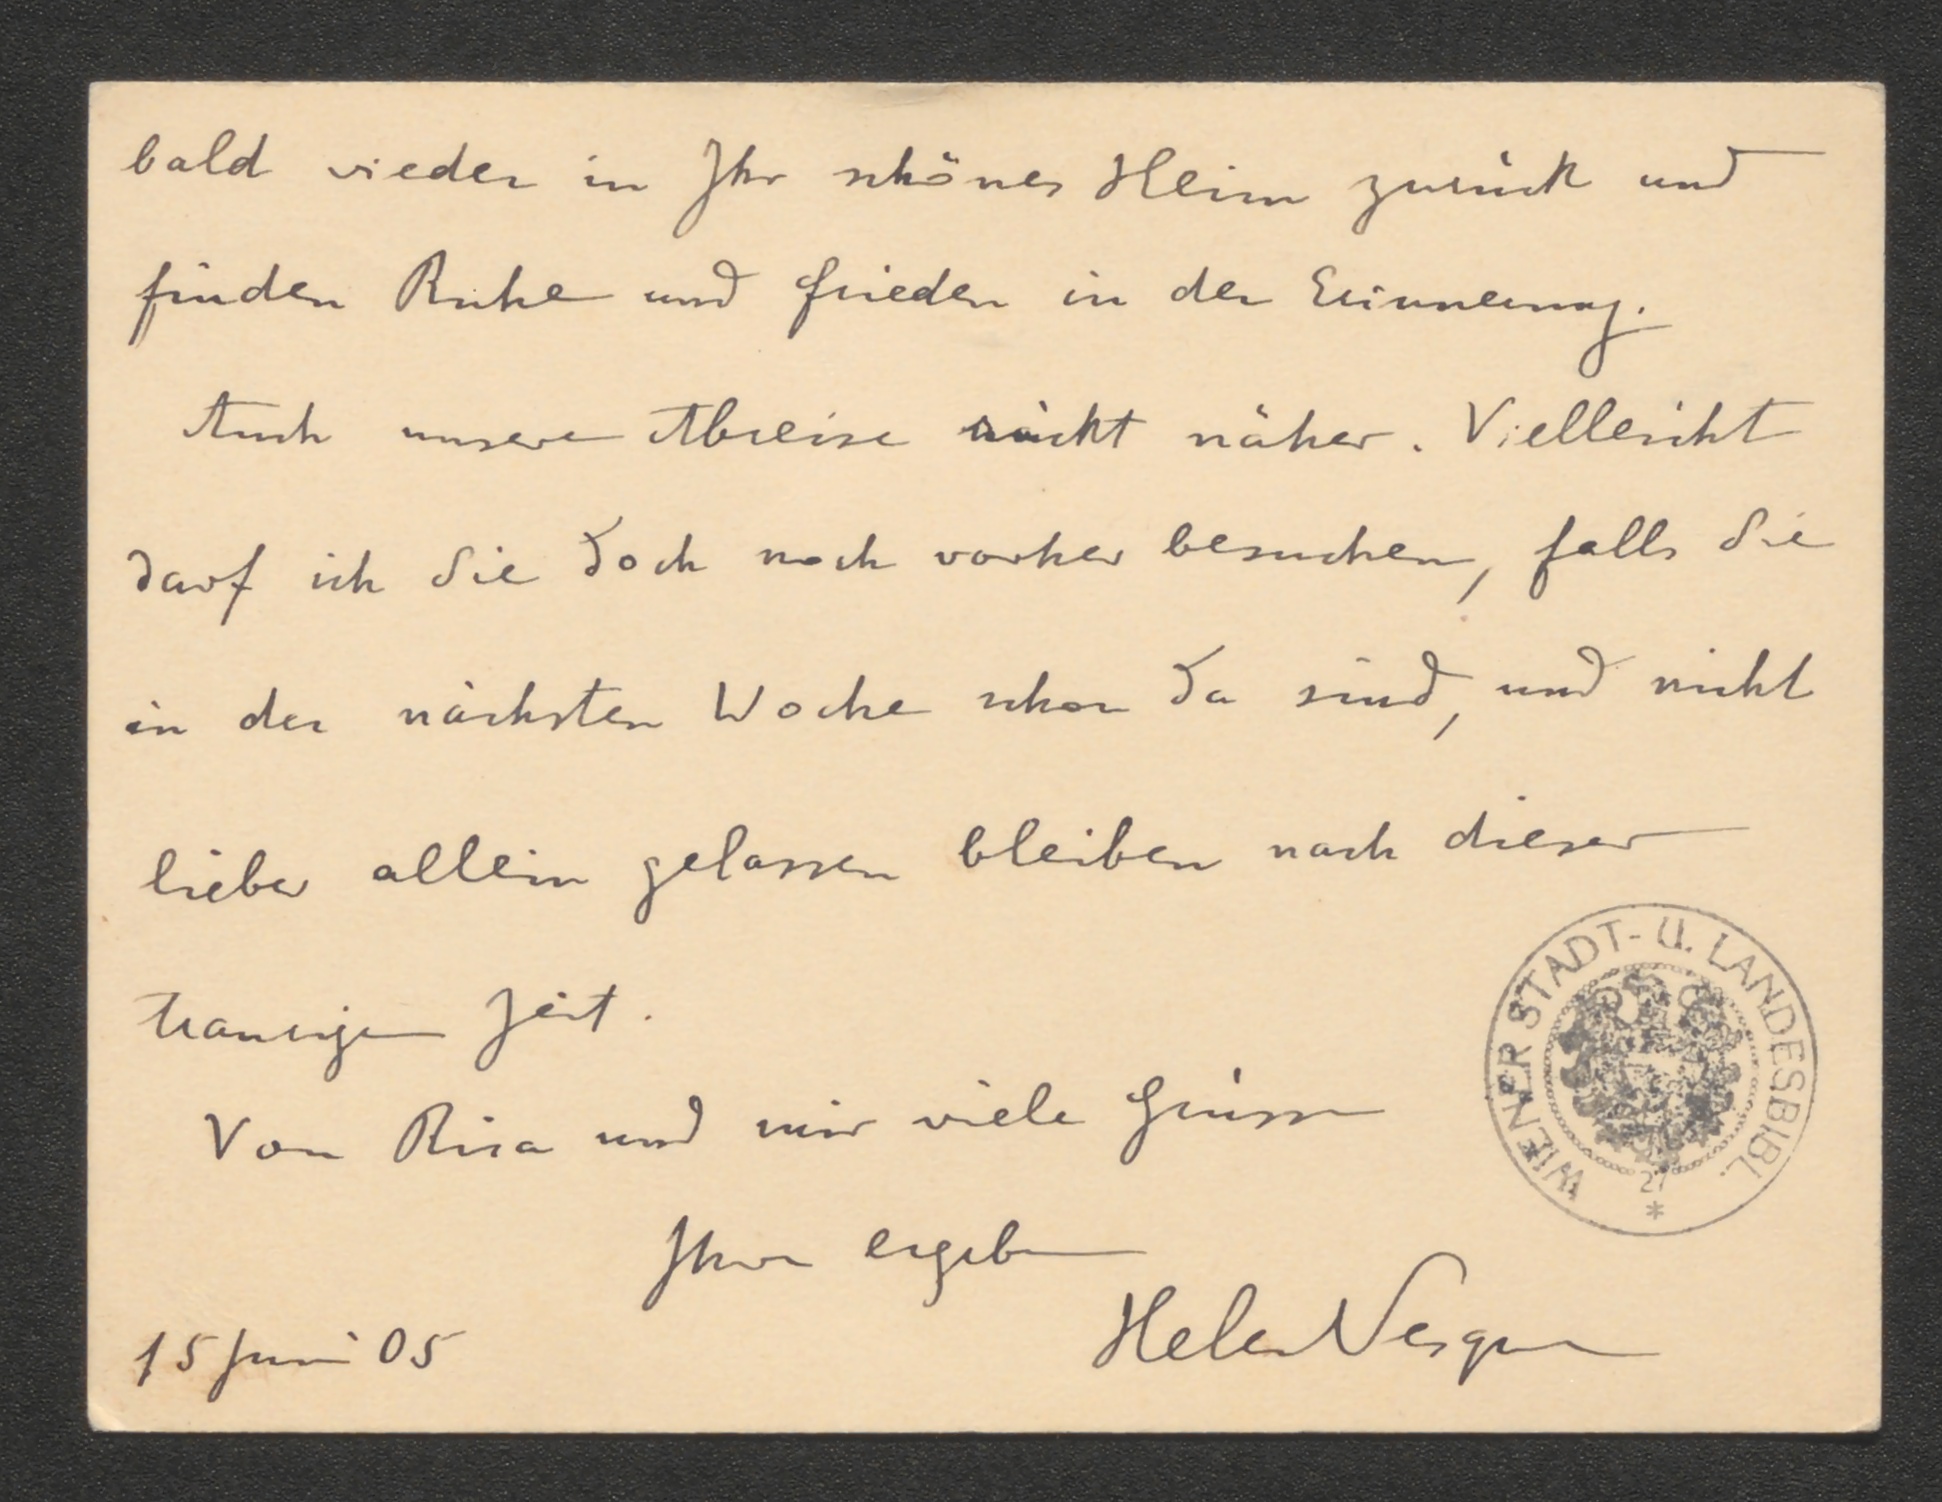 bald wieder in Ihr schönes Heim zurück und
finden Ruhe und Frieden in der Erinnerung.
Auch unsere Abreise rückt näher. Vielleicht
darf ich Sie doch noch vorher besuchen, falls Sie
in der nächsten Woche schon da sind, und nicht
lieber allein gelassen bleiben nach dieser
traurigen Zeit.
Von Risa und mir viele Grüsse
Ihre ergeben
15 Juni 05
WIENER STADT- U. LANDESBIBL.
27
*